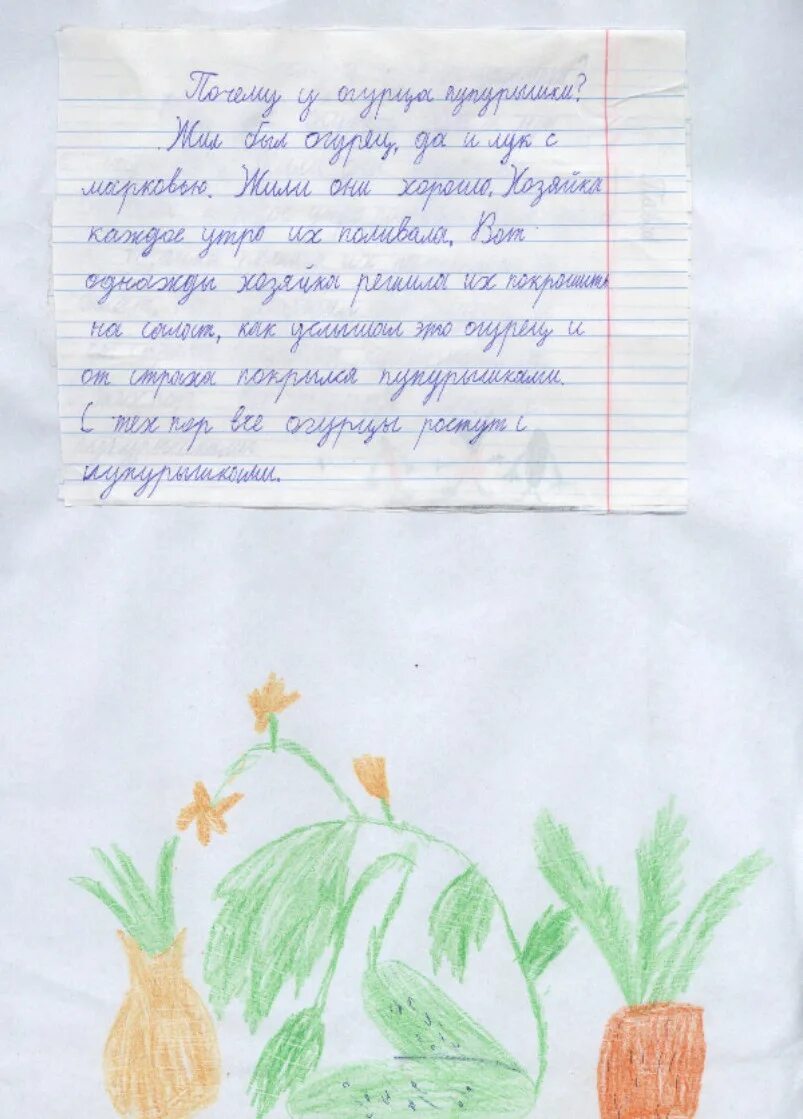 Почему у огурца пупурышки?
Жил был огурец, да и лук с
марковью. Жили они хорошо. Хозяйка
каждое утро их поливала. Вот
однажды хозяйка решила их покрошить
на салат, как услышал это огурец и
от страха покрылся пупурышками.
С тех пор все огурцы ростут с
пупурышками.